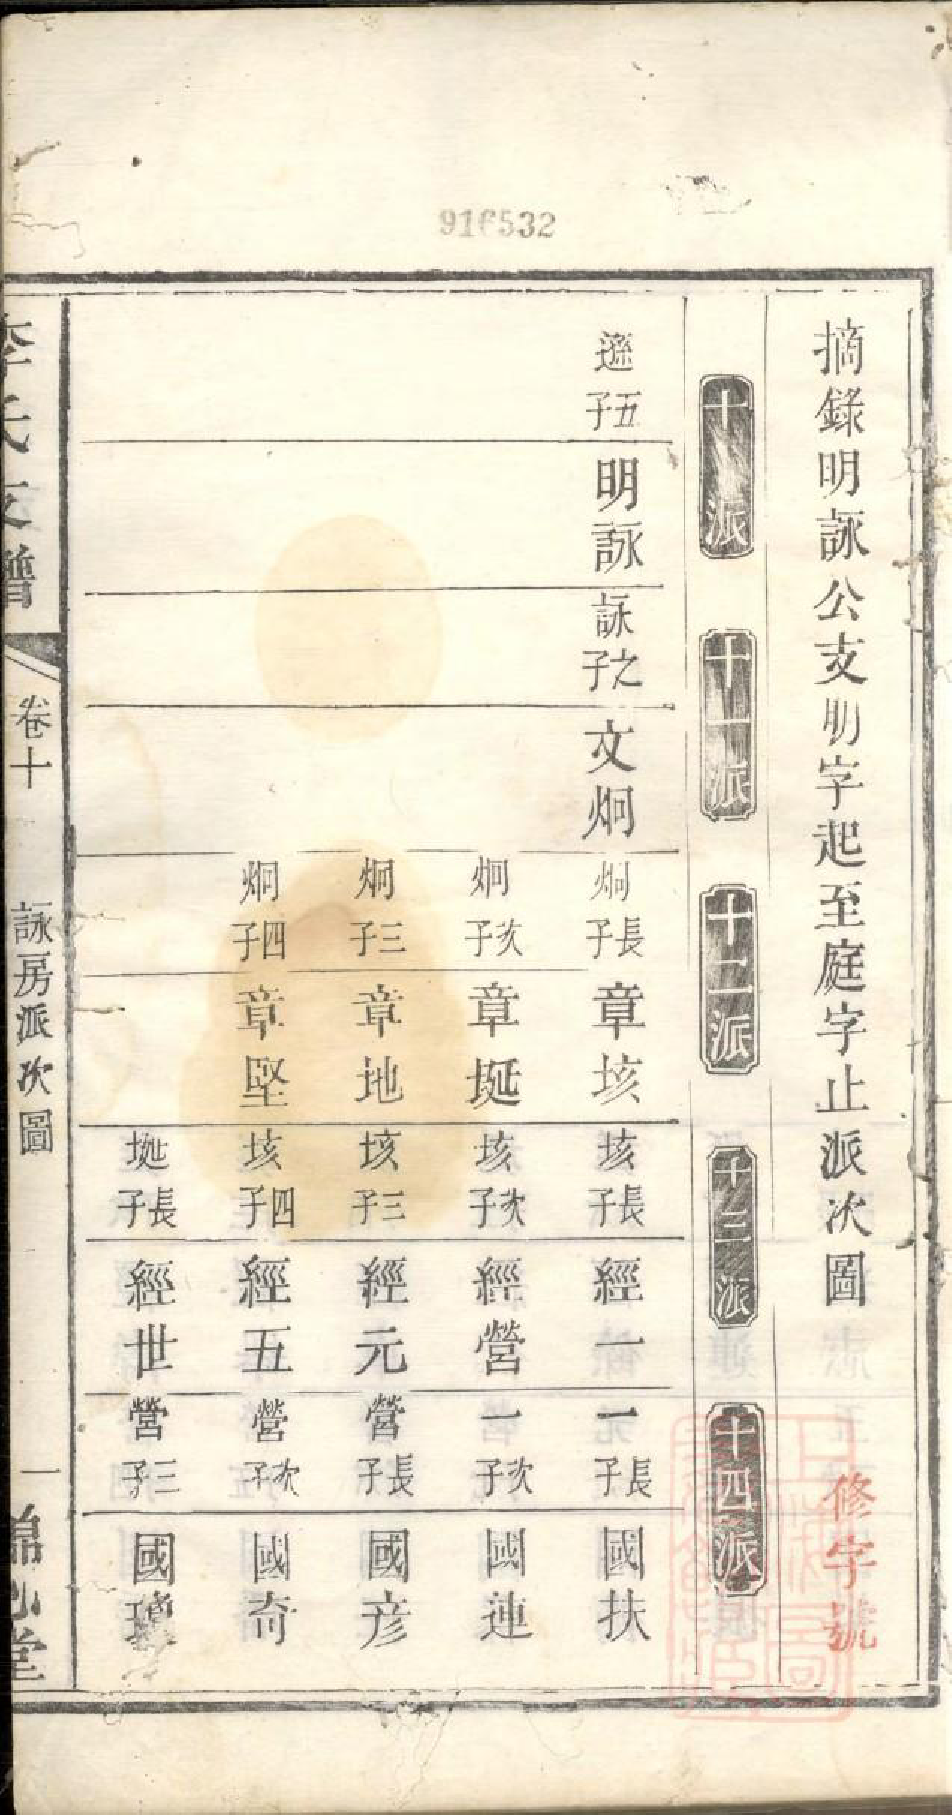 916532
摘錄明詠公支明字起至庭字止派次圖
修字號
十派
十一派
十二派
十三派
十四派
遜五子
明詠
詠之子
文炯
炯長子
章垓
垓長子
經一
一長子
國扶
炯次子
章埏
垓次子
經營
一次子
國蓮
炯三子
章地
垓三子
經元
營長子
國彦
炯四子
章堅
垓四子
經五
營次子
國奇
埏長子
經世
營三子
國
李氏支譜
卷十
詠房派次圖
一
堂